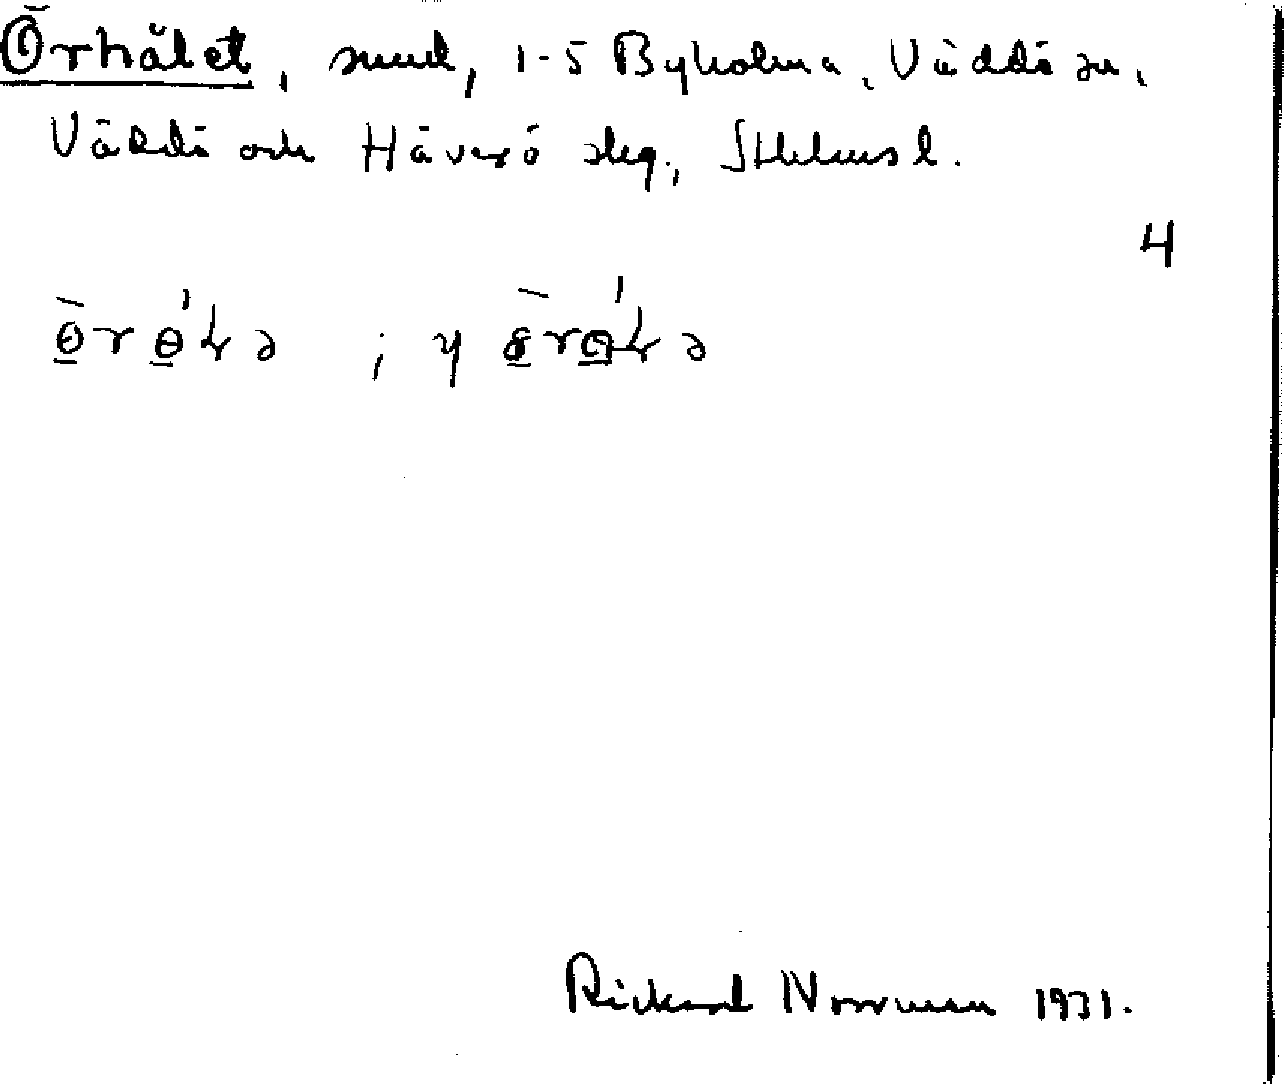 Örhålet, sund, 1-5 Byholma, Väddö sn,
Väddö och Häverö skg., Sthlms l.
4
; y
Rickard Norrman 1931.